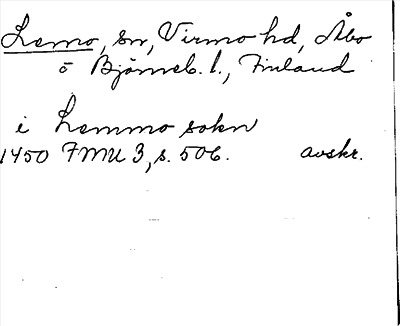 Lemo, sn, Virmo hd, Åbo
o Björneb. l., Finland
i Lemmo sokn
1450 FMU 3, s. 506. avskr.